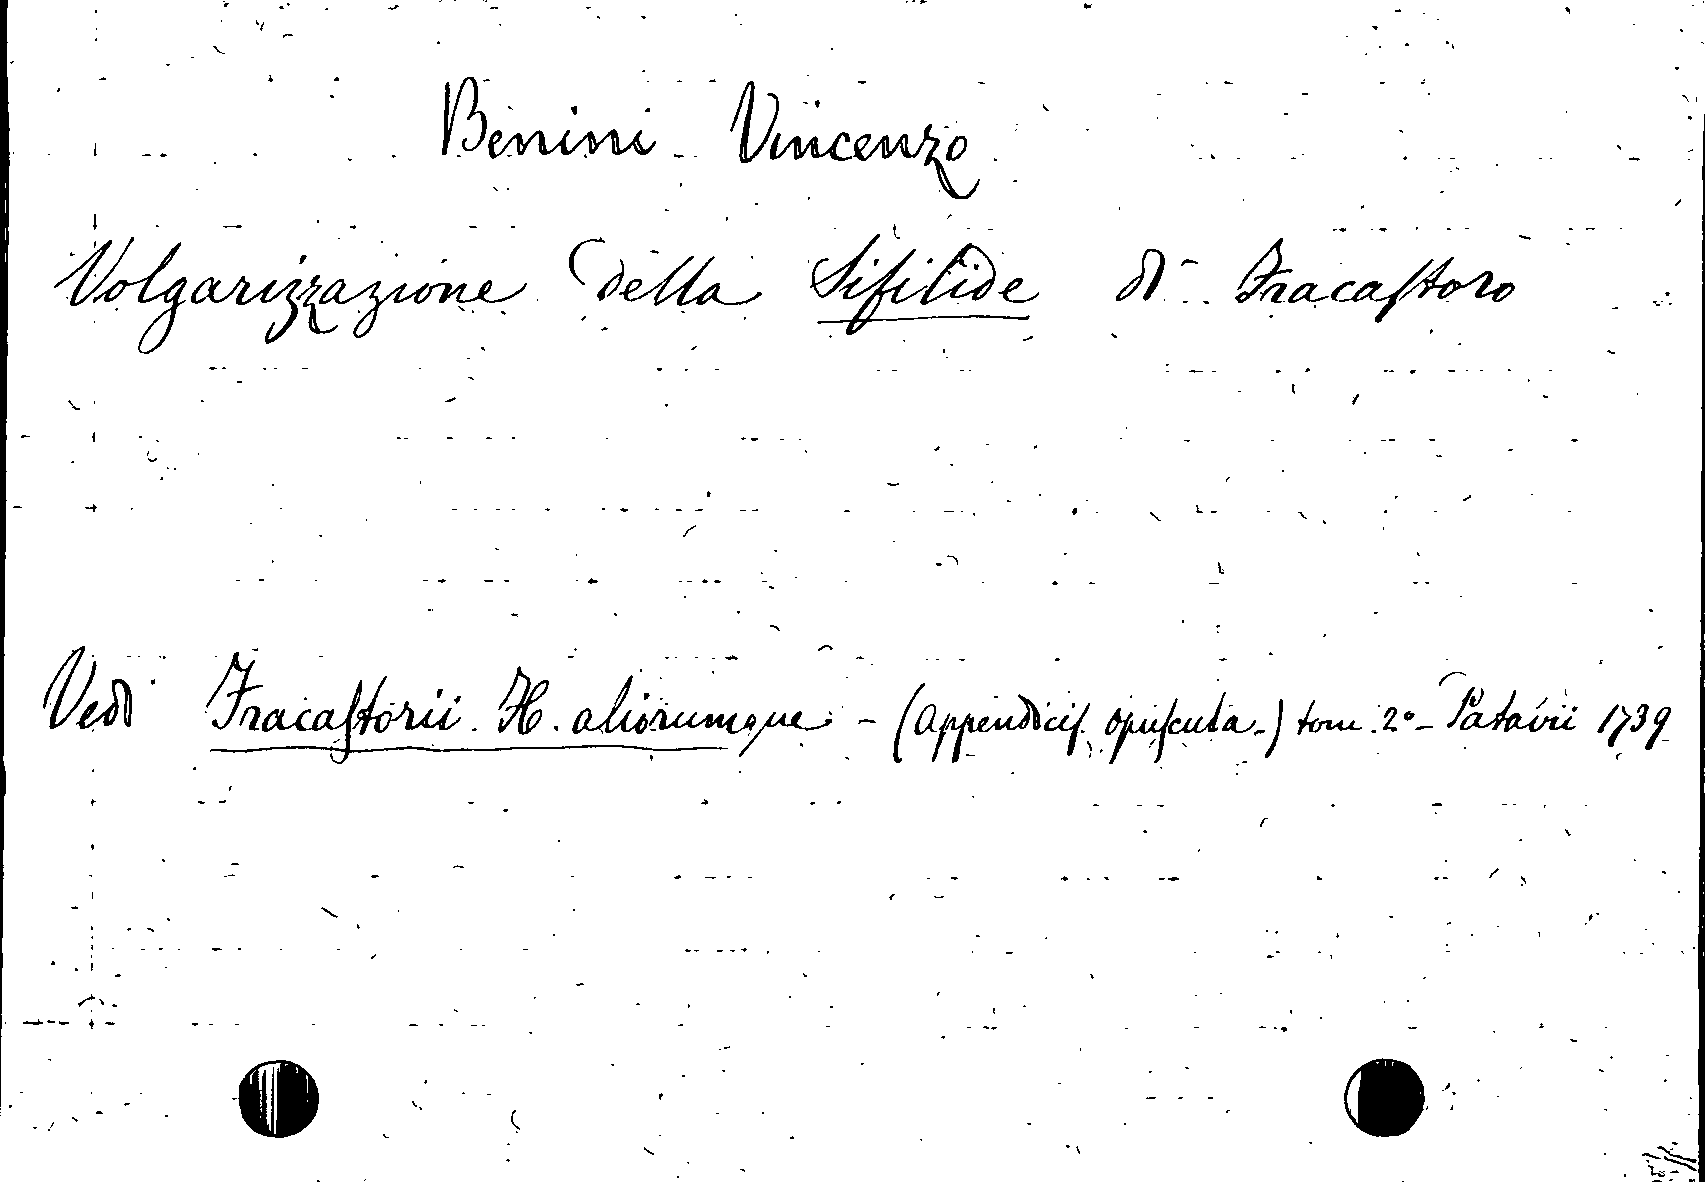 Benini Vincenzo
Volgarizzazione della Sifilide di Fracastoro
Vedi Fracastorii H. aliorumque - (appendicis opuscula-) tom. 2º - Patavii 1739